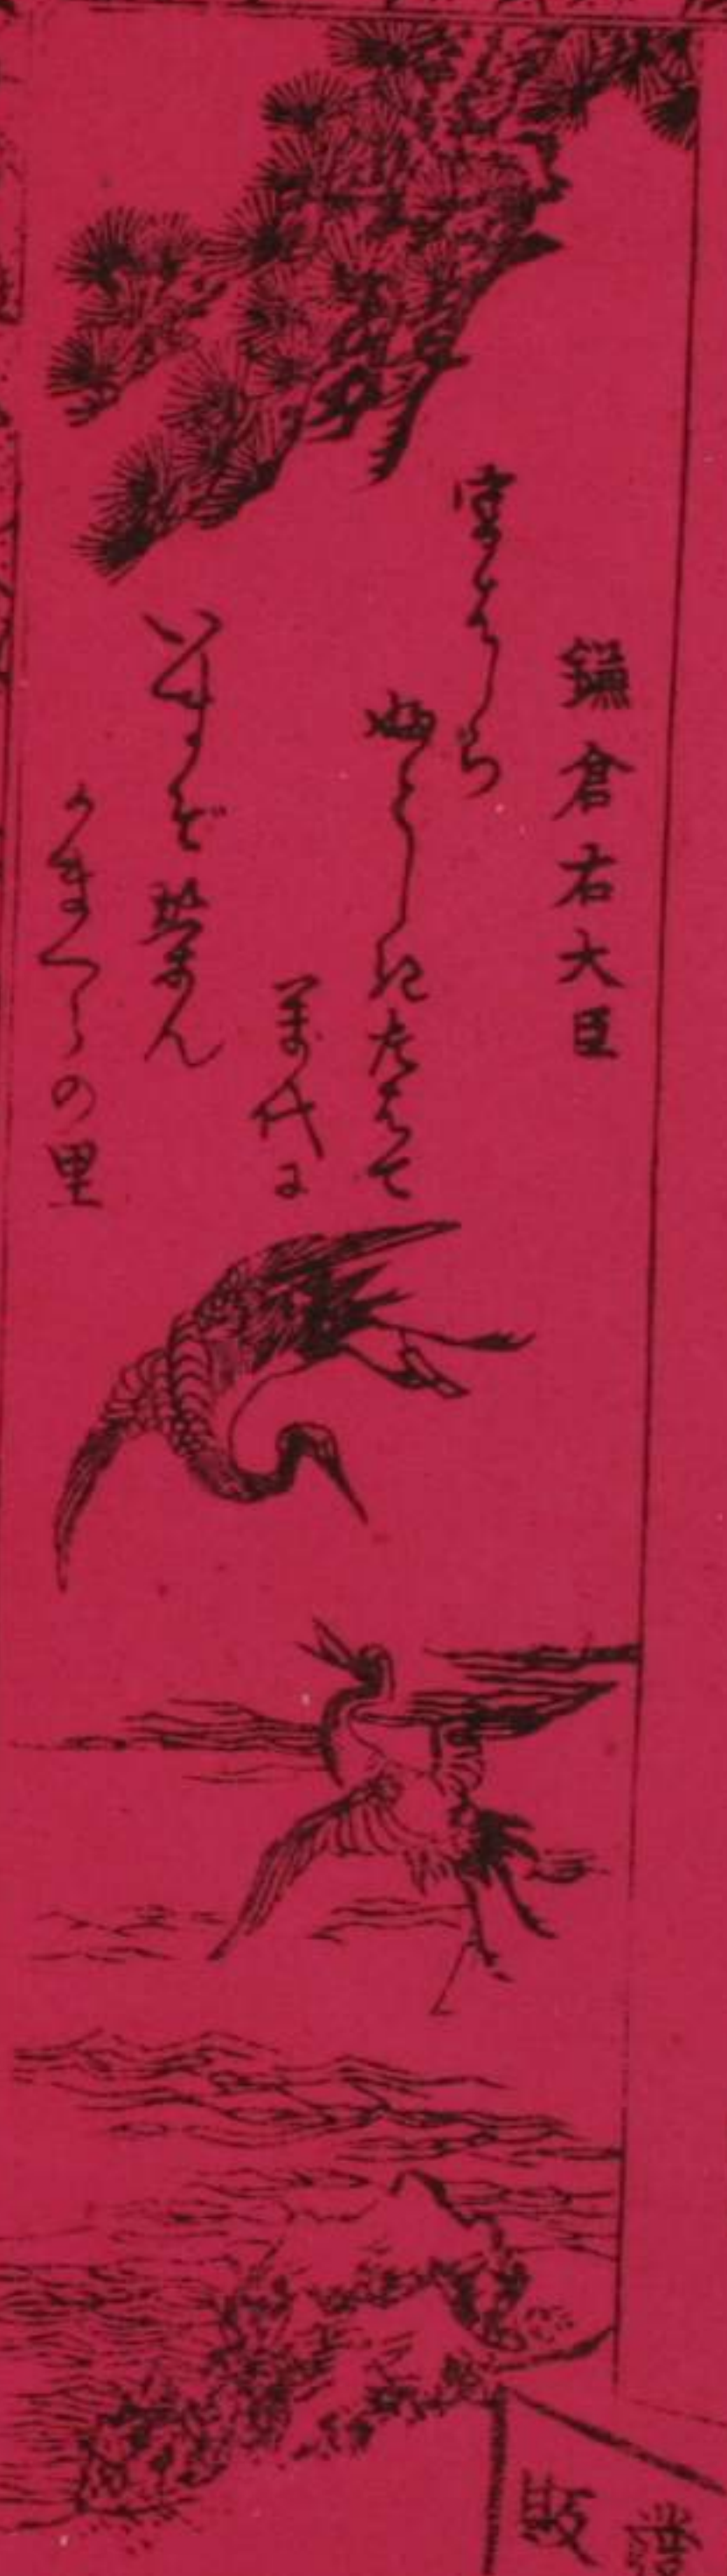 鎌倉右大臣
宮はしら
ふとしきたてて
萬代に
いまぞ栄えん
かまくらの里